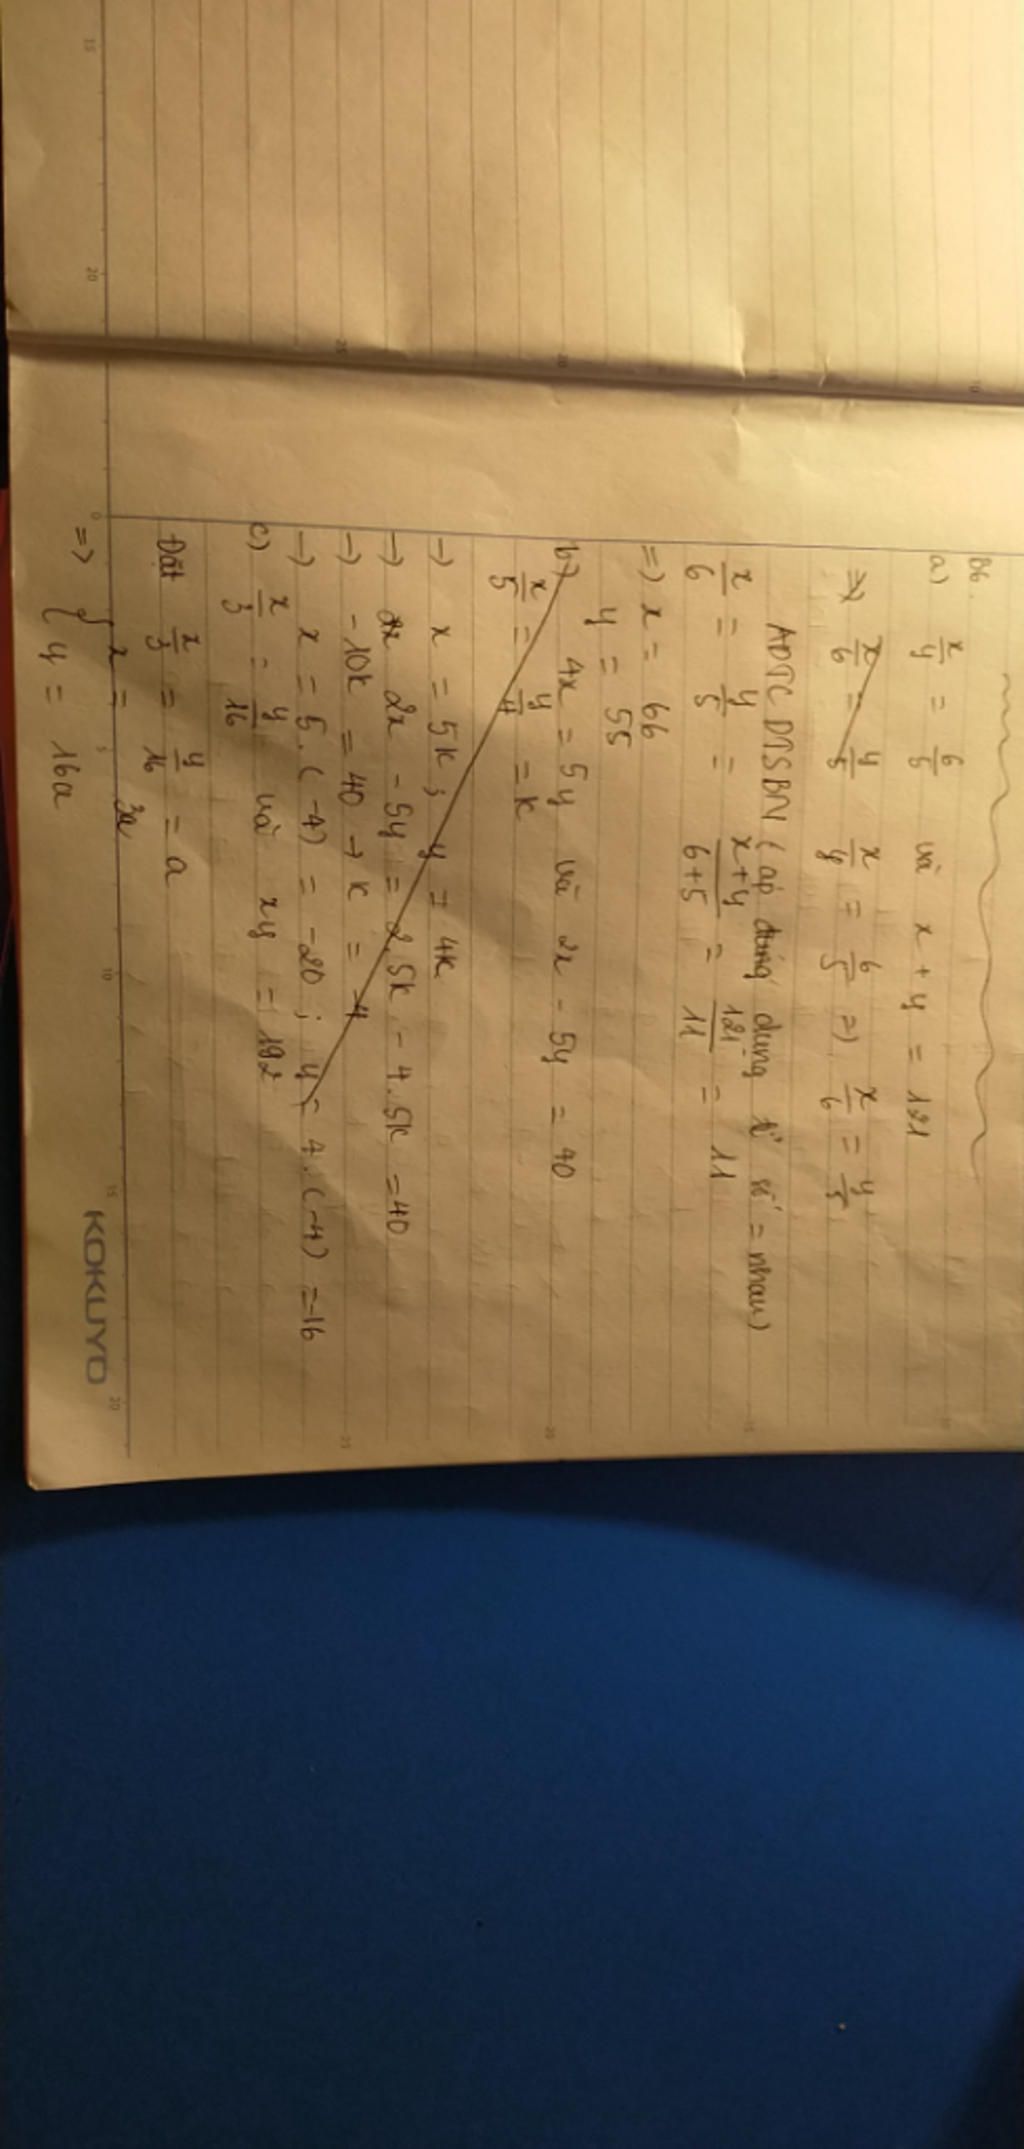 B6.
a) x/y = 6/5 và x + y = 121
=> x/6 = y/5 x/y = 6/5 => x/6 = y/5
ADTC DTSBN (áp dụng dung tỉ số = nhau)
x/6 = y/5 = x+y/6+5 = 121/11 = 11
=> x = 66
y = 55
b) 4x = 5y và 2x - 5y = 40
x/5 = y/4 = k
-> x = 5k ; y = 4k
-> 2x 2x - 5y = 2.5k - 4.5k = 40
-> -10k = 40 -> k = -4
-> x = 5.(-4) = -20 ; y = 4.(-4) = -16
c) x/3 = y/16 và xy = 192
Đặt x/3 = y/16 = a
x = 3a
=> { y = 16a
KOKUYO